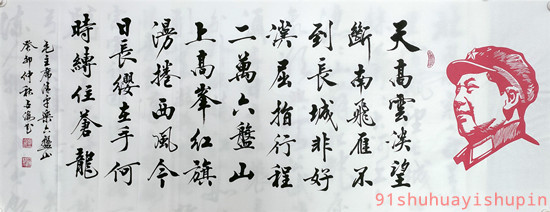 天高雲淡望
斷南飛雁不
到長城非好
漢屈指行程
二萬六盤山
上高峯紅旗
漫捲西風今
日長纓在手何
時縛住蒼龍
毛主席清平樂六盤山
癸卯仲秋
91shuhuayishupin